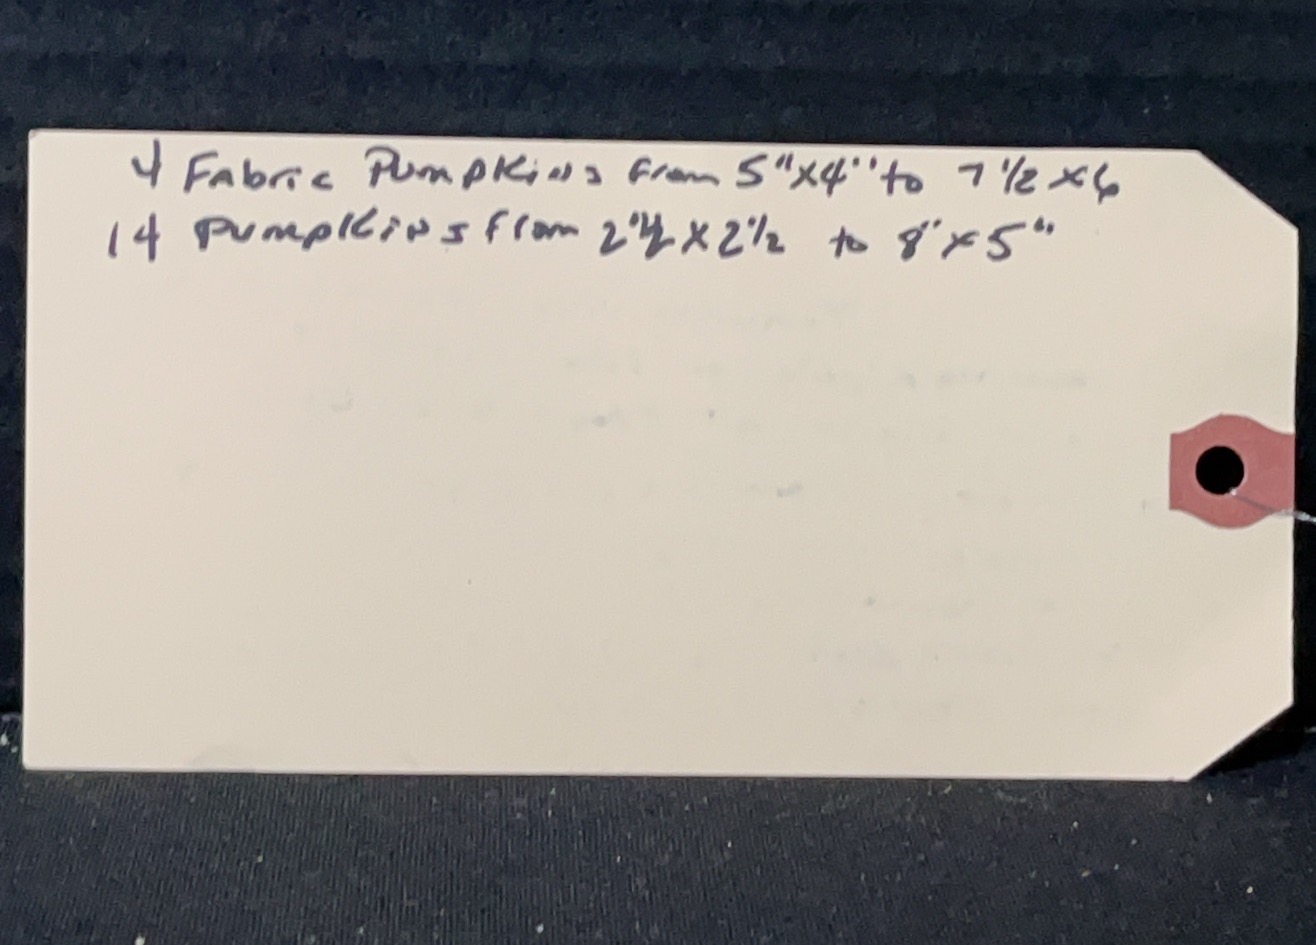 4 Fabric Pumpkins from 5"x4" to 7 1/2 x 6
14 Pumpkins from 2"1/2 x 2"1/2 to 8"x5"